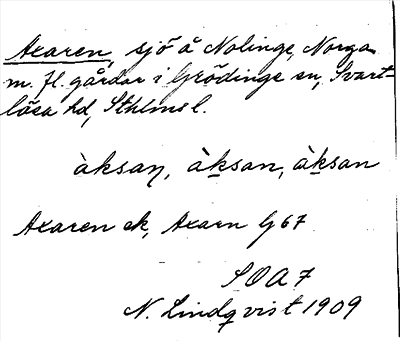 Axaren, sjö å Nolinge, Norga
m. fl. gårdar i Grödinge sn, Svart-
lösa hd, Sthlms l.
àksaƞ, àksan, àksan
Axaren ek, Axarn G 67
SOA 7
N. Lindqvist 1909